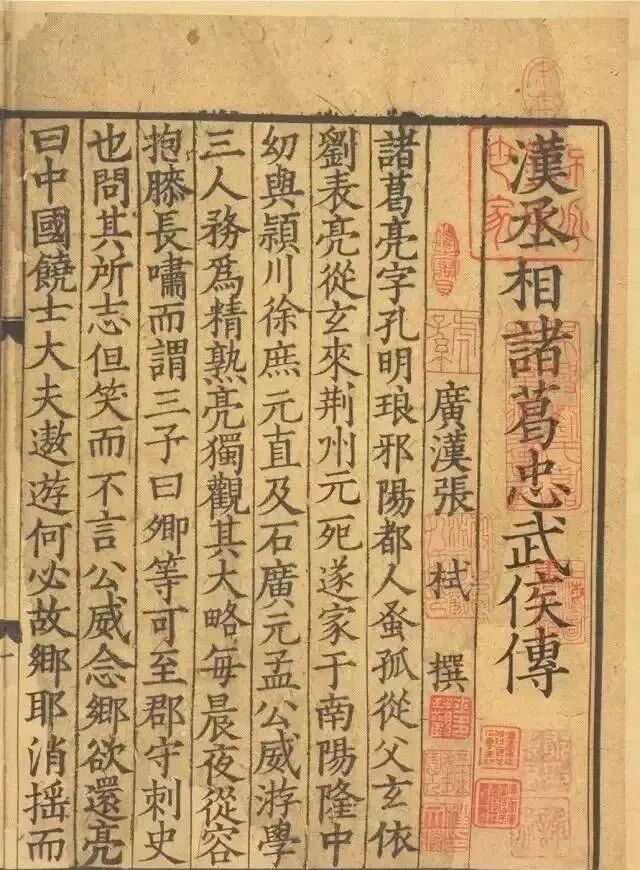 漢丞相諸葛忠武侯傳
廣漢張 栻 撰
諸葛亮字孔明琅邪陽都人蚤孤從父玄依
劉表亮從玄來荆州元死遂家于南陽隆中
幼與潁川徐庶元直及石廣元孟公威游學
三人務爲精熟亮獨觀其大略每晨夜從容
抱膝長嘯而謂三子曰卿等可至郡守刺史
也問其所志但笑而不言公威念鄉欲還亮
曰中國饒士大夫遨遊何必故鄉耶消揺而